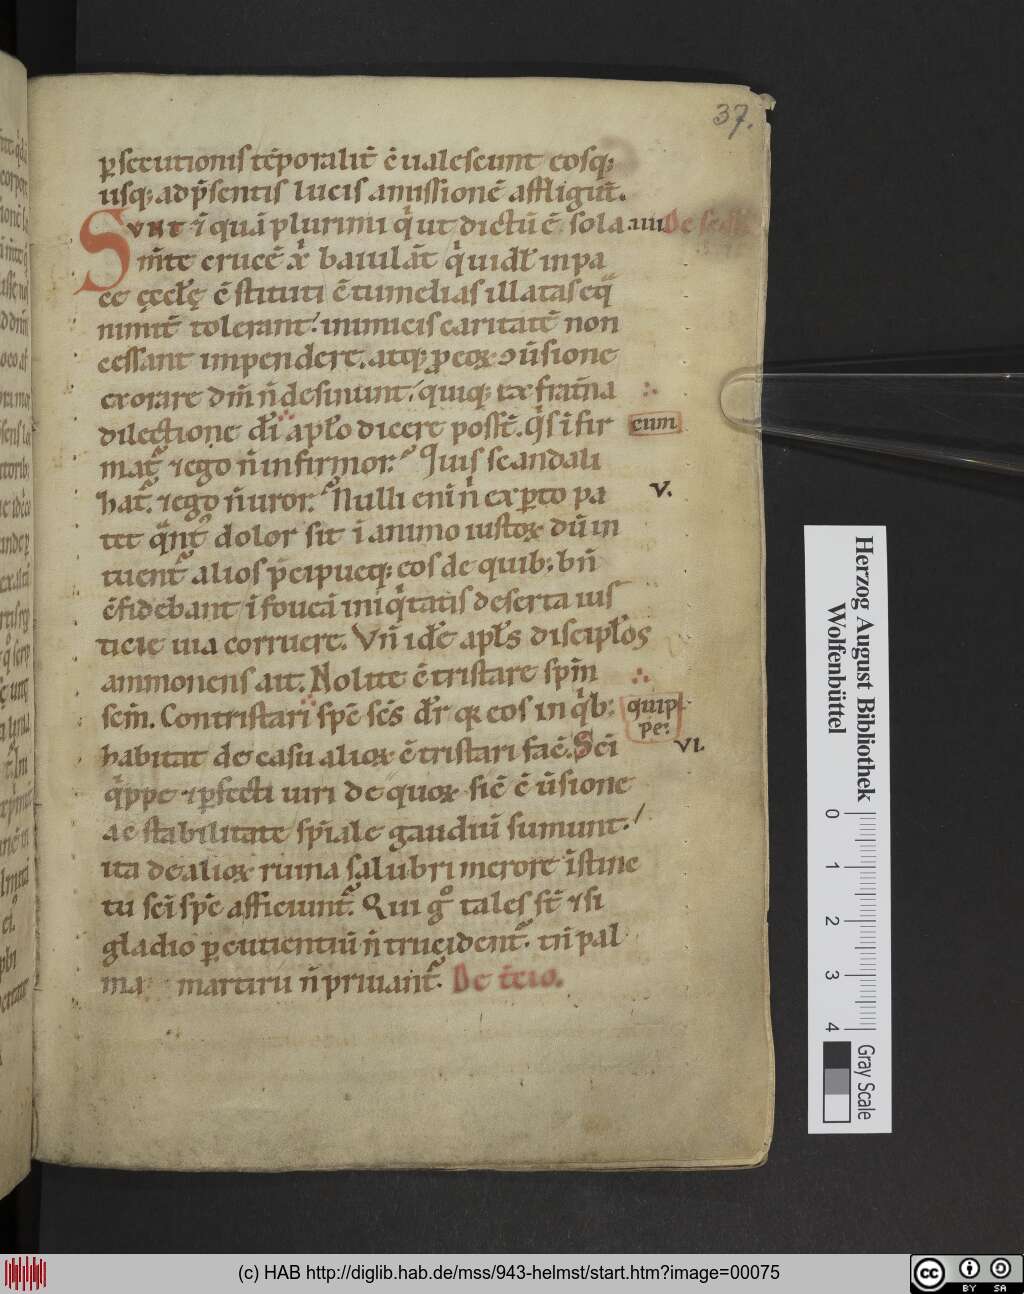 37.
ꝑsecutionis tēporaliū ē ualescunt eosq;
usq; ad p̄sentis lucis amissionē affligūt.
Sunt ī quā plurimi q̇ ut dictū ē sola
.iiii. De
m̄te crucē baiulāt q̇ uidel̄ in pa
ce ęccl̄ę ēstituti ētumelias illatas eq
nimit̄ tolerant. inimicis caritatē non
cessant impendere. atq; ꝓ eoꝝ ↄūsione
exorare dm̄ n̄ desinunt. quiq;
dilectione dī apl̄o dicere poss̄t. q̇s īfir
cum
mat̄ ⁊ ego n̄ infirmor. Quis scandali
hat̄. ⁊ ego n̄ uror. Nulli eni n̄ exꝑto pa
v.
tet dolor sit ī animo iustoꝝ dū in
tuent̄ alios p̄cipueq; eos de quib; bn̄
ēfidebant ī foueā iniq̇tatis deserta ius
ticie uia corruere. Vn̄ idē apl̄s discipl̄os
ammonens ait. Nolite ētristare spm̄
scm̄. Contristari spē scēs dr̄ qꝛ eos in q̇b;
quip
pe:
habitat de casu alioꝝ ētristari facē. Sci
vi.
q̇ppe ⁊ ꝑfecti uiri de quoꝝ sic̄ ē ūsione
ac stabilitate sp̄iale gaudiū sumunt.
ita de alioꝝ ruina salubri merore īstinc
tu scī spē afficiunt̄. Qui g̊ tales st̄ ⁊ si
gladio ꝑcutientiū n̄ trucident̄. tn̄ pal
ma martiru n̄ priuant̄. De t̄cio.
Herzog August Bibliothek
Wolfenbüttel
0 1 2 3 4
Gray Scale
(c) HAB http://diglib.hab.de/mss/943-helmst/start.htm?image=00075
cc BY SA